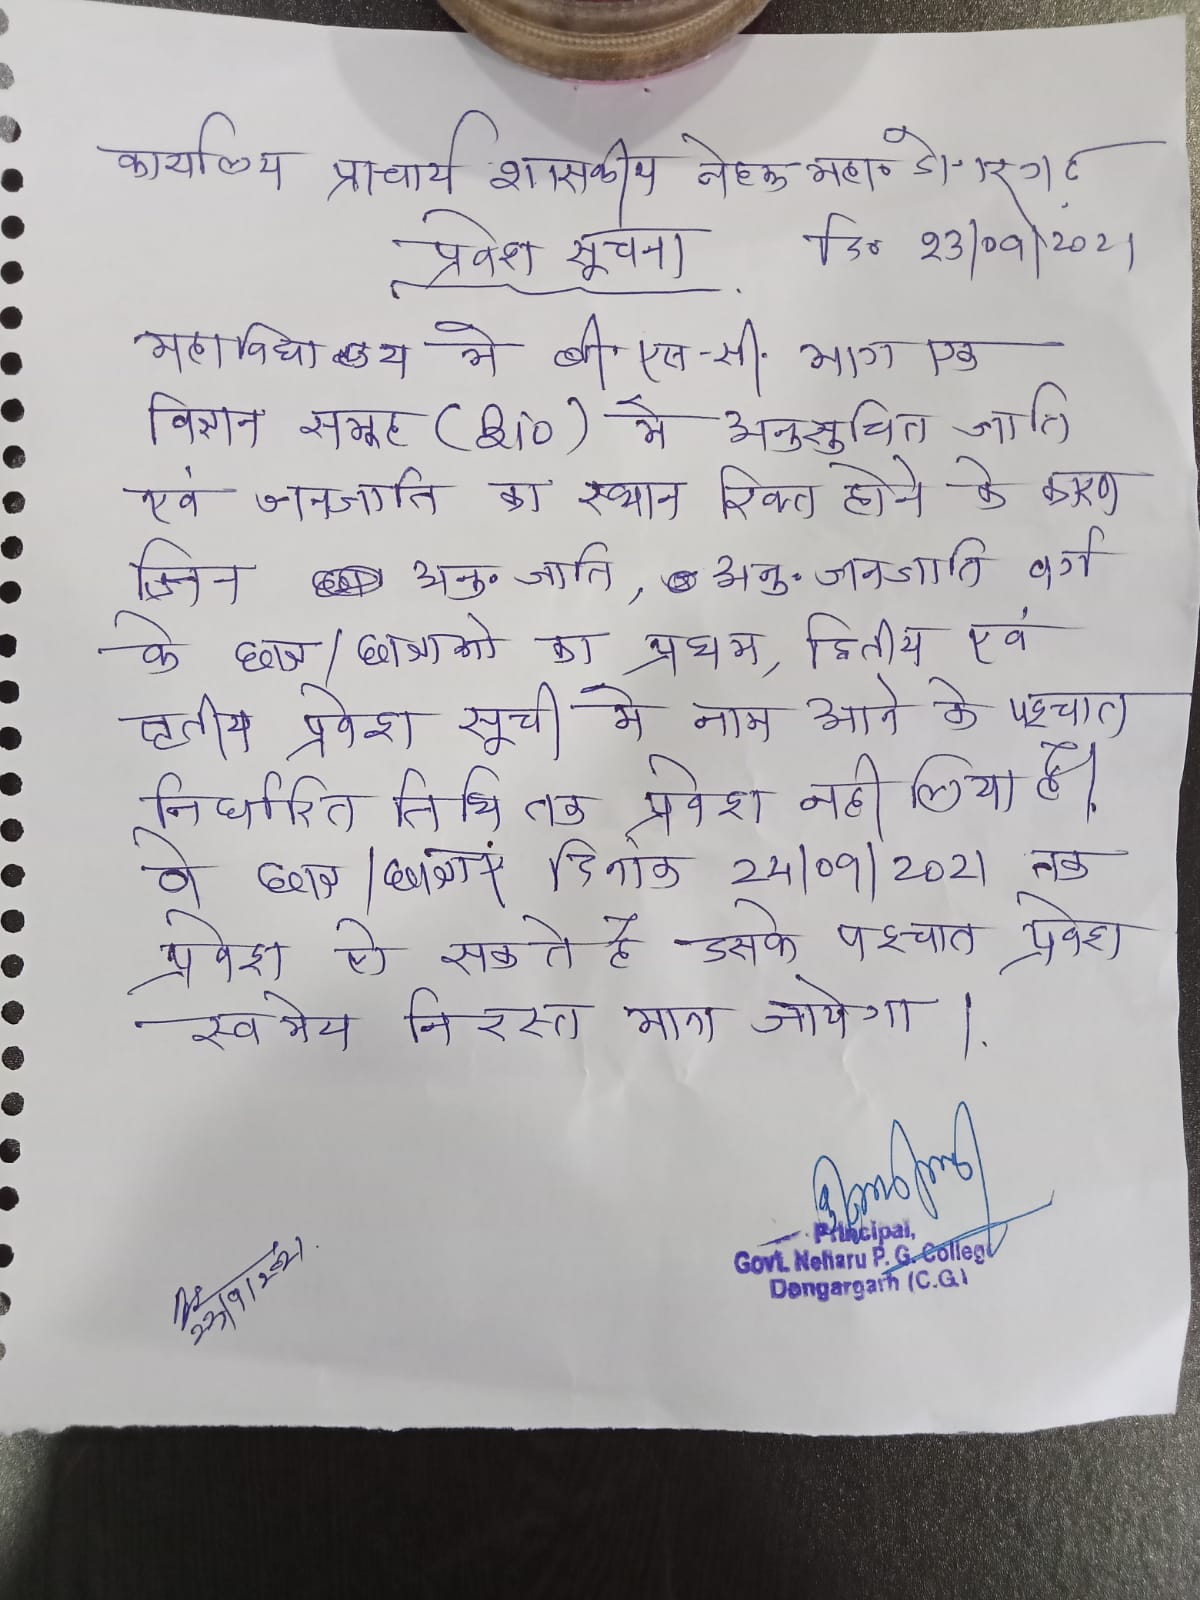 कार्यालय प्राचार्य शासकीय नेहरू महा० डोंगरगढ़
प्रवेश सूचना दि० 23/09/2021
महाविद्यालय में बी.एस-सी. भाग एक
विज्ञान समूह (Bio) में अनुसुचित जाति
एवं जनजाति का स्थान रिक्त होने के कारण
जिन अनु. जाति, अनु. जनजाति वर्ग
के छात्र/छात्राओं का प्रथम, द्वितीय एवं
तृतीय प्रवेश सूची में नाम आने के पश्चात
निर्धारित तिथि तक प्रवेश नही लिया है।
वे छात्र/छात्राएं दिनांक 24/09/2021 तक
प्रवेश ले सकते है उसके पश्चात प्रवेश
स्वमेव निरस्त माना जायेगा।
Principal,
Govt. Neharu P. G. College
Dongargarh (C.G.)